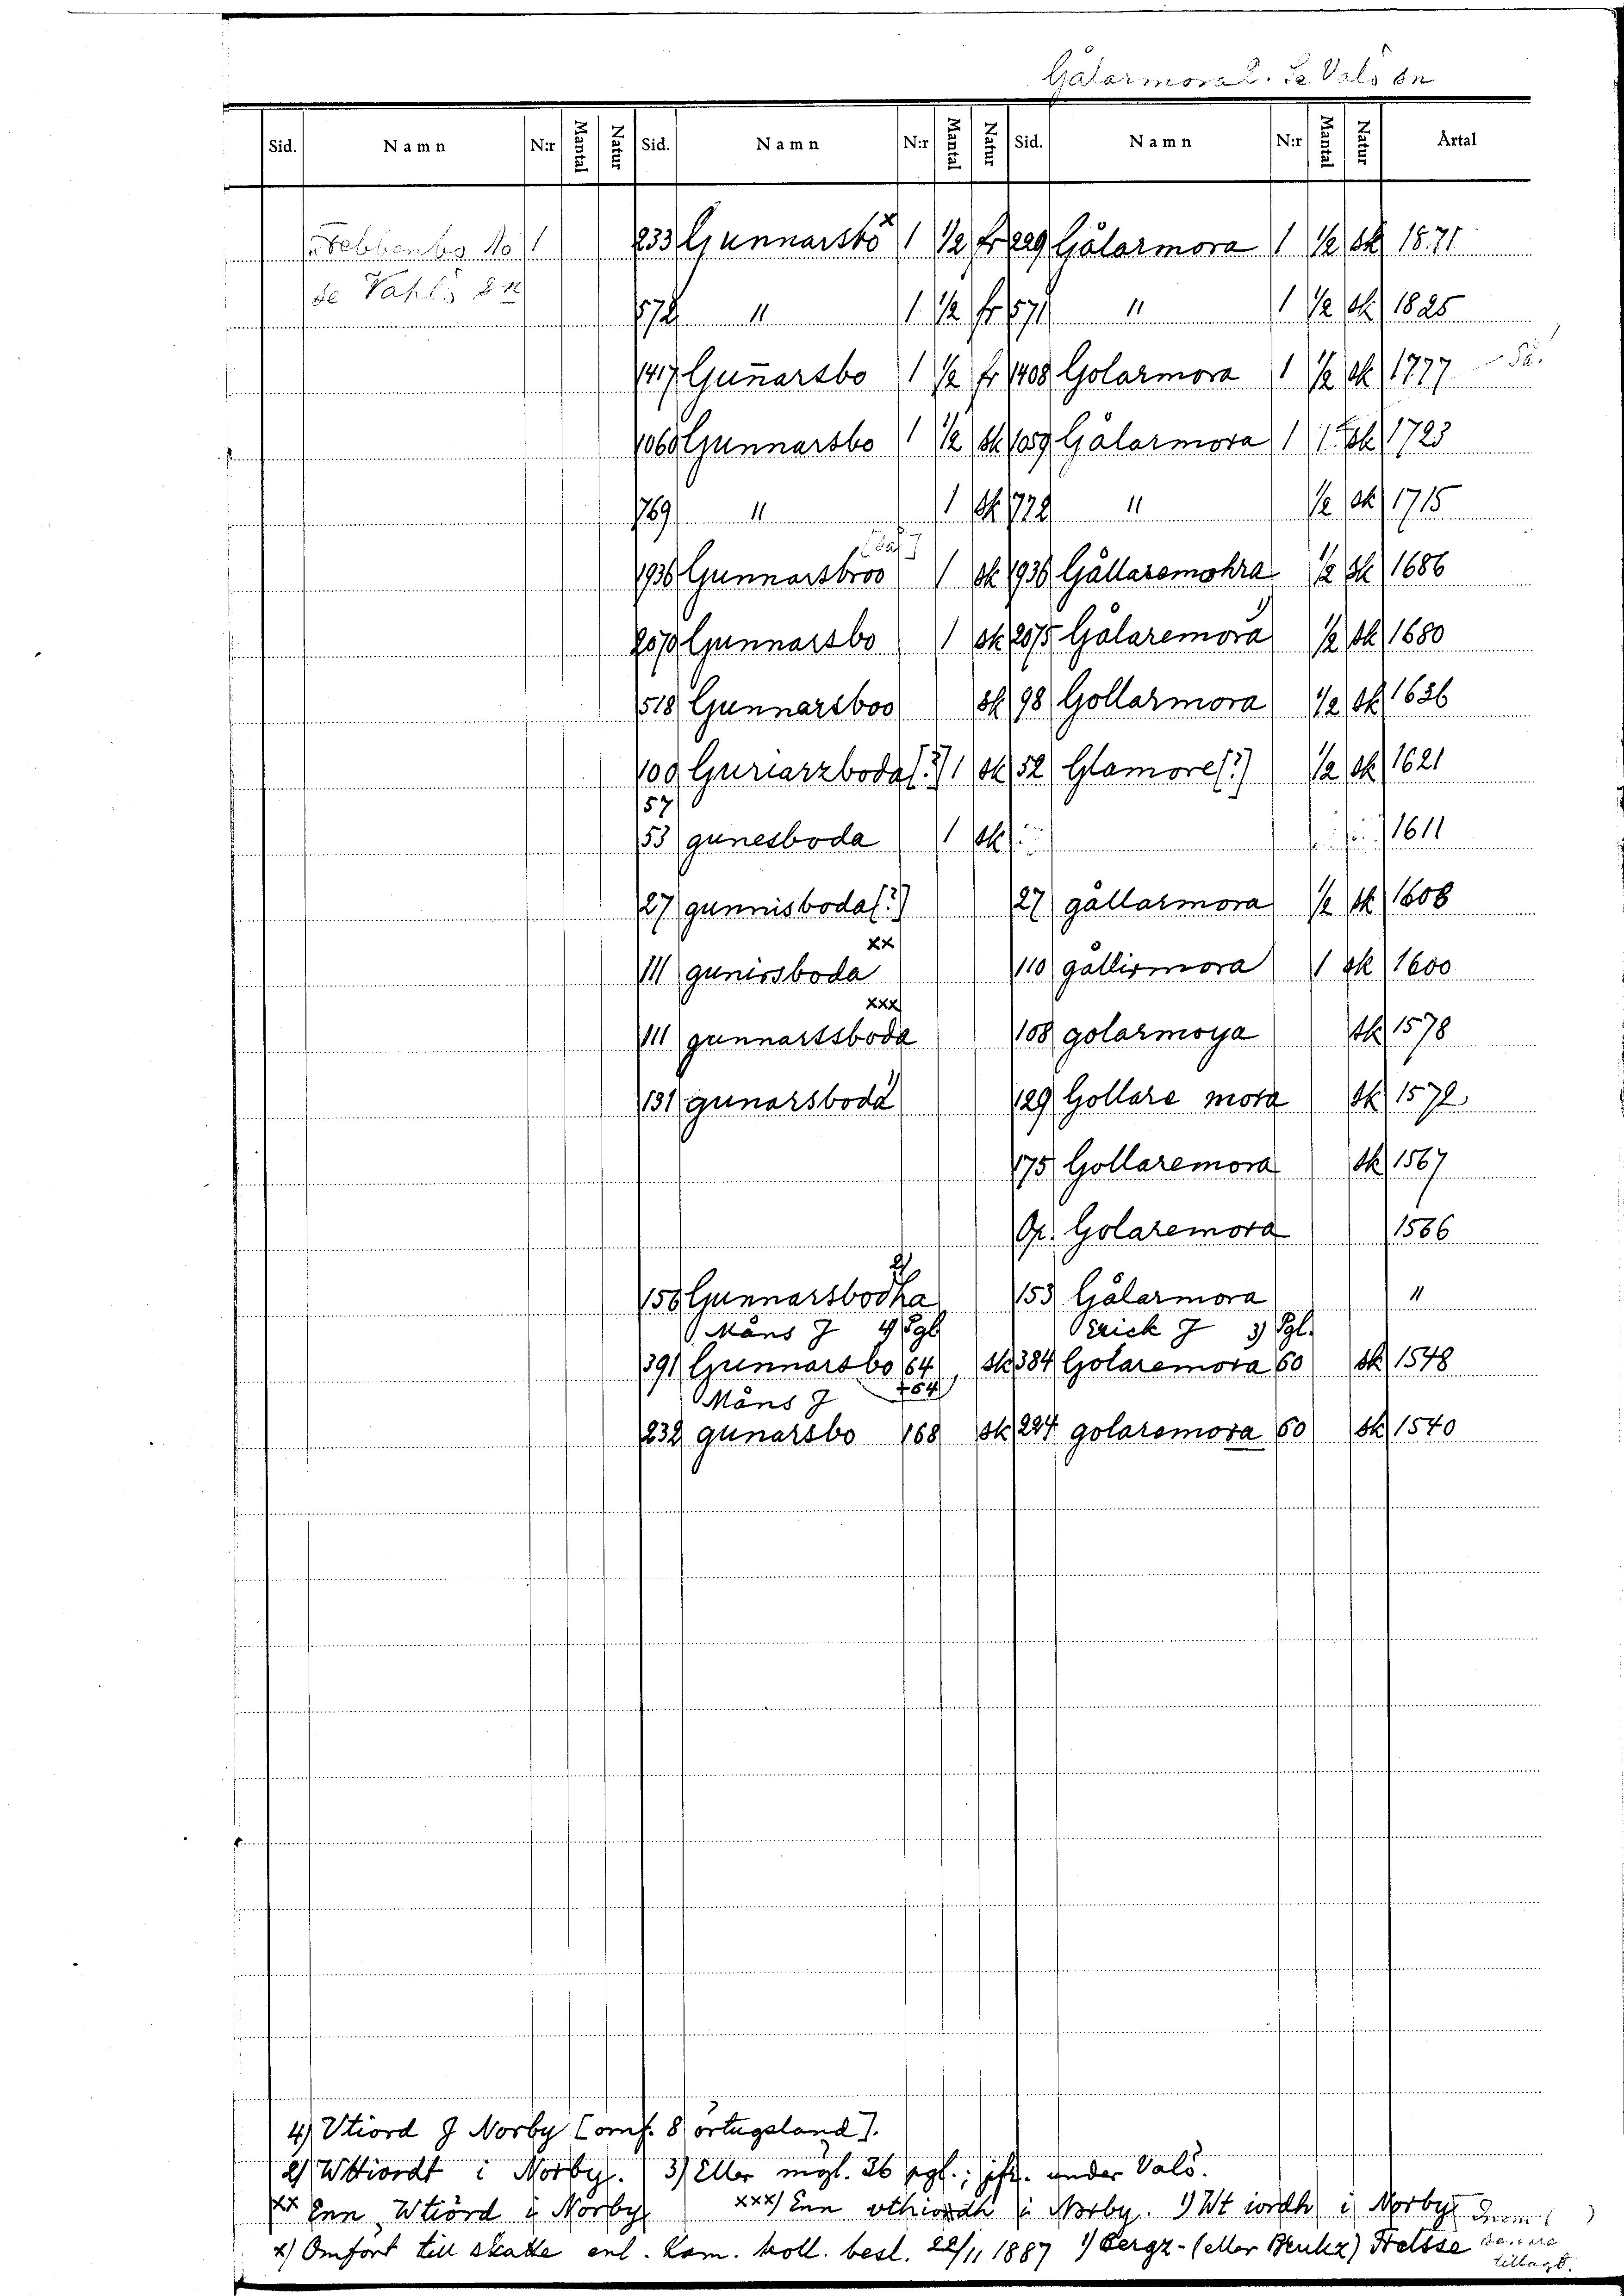 Gålarmora 2. Se Valö sn
Sid. Namn N:r Mantal Natur Sid. Namn N:r Mantal Natur Sid. Namn N:r Mantal Natur Årtal
No 1 233 Gunnarsbo x 1 1/2 fr 229 Gålarmora 1 1/2 sk 1871
se Vahlö sn
572 " 1 1/2 fr 571 " 1 1/2 sk 1825
1417 Gun̄arsbo 1 1/2 fr 1408 Golarmora 1 1/2 sk 1777
1060 Gunnarsbo 1 1/2 sk 1059 Gålarmora 1 1 sk 1723
769 " 1 sk 772 " 1/2 sk 1715
1936 Gunnarsbroo 1 sk 1936 Gållaremohra 1/2 sk 1686
2070 Gunnarsbo 1 sk 2075 Gålaremora 1) 1/2 sk 1680
518 Gunnarsboo sk 98 Gollarmora 1/2 sk 1636
100 Guriarzboda [?] 1 sk 52 Glamore [?] 1/2 sk 1621
57
53 gunesboda 1 sk 1611
27 gunnisboda [?] 27 gållarmora 1/2 sk 1608
111 gunirsboda xx 110 gållirmora 1 sk 1600
111 gunnarssboda xxx 108 golarmoya sk 1578
131 gunarsboda 1) 129 Gollare mora sk 1572
175 Gollaremora sk 1567
Gr. Golaremora 1566
156 Gunnarsbodha 2) 153 Gålarmora "
Måns J 4) Pgl Erick J 3) Pgl.
391 Gunnarsbo 64 sk 384 Golaremora 60 sk 1548
Måns J +64
232 gunarsbo 168 sk 224 golaremora 60 sk 1540
4) Vtiord J Norby [omf. 8 örtugsland].
2) Wttiordt i Norby. 3) Eller mögl. 36 pgl.; jfr. under Valö.
xx Enn Wtiörd i Norby xxx) Enn vthiordh i Norby. 1) Wt iordh i Norby Inom ( )
x) Omfört till skatte enl. Kam. koll. besl. 22/11 1887 1) Bergz- (eller Brukz) Frelsse senare
tillagt.